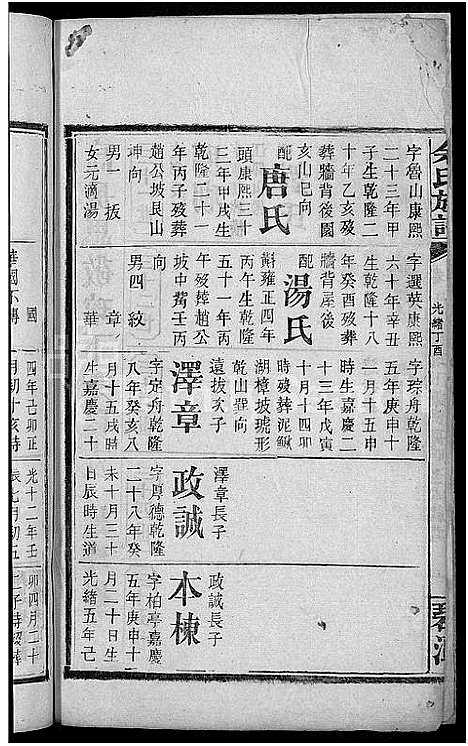 余氏族譜
光緒丁酉
字魯山康熙
二十三年甲
子生乾隆二
十年乙亥歿
葬牆背後園
亥山巳向
配唐氏
頭康熙三十
三年甲戌生
乾隆二十一
年丙子歿葬
趙公坡艮山
坤向
男一 拔
女元滴湯
字選英康熙
六十年辛丑
生乾隆十八
年癸酉歿葬
牆背屋後
配湯氏
斛雍正四年
丙午生乾隆
五十一年丙
午歿葬趙公
坡中嘴壬丙
向
男四 紋 章
國 華
字琮舟乾隆
五年庚申十
一月十五申
時生嘉慶二
十三年戊寅
十月十四卯
時歿葬泥鰍
湖樟坡琥形
乾山巽向
遠拔次子
澤章
字定舟乾隆
八年癸亥八
月十五戌時
生嘉慶二十
四年己卯正
月初十亥時
澤章長子
政誠
字厚德乾隆
二十八年癸
未十月三十
日辰時生道
光十二年壬
辰七月初五
政誠長子
本棟
字柏亭嘉慶
五年庚申十
月二十日生
光緒五年己
卯四月二十